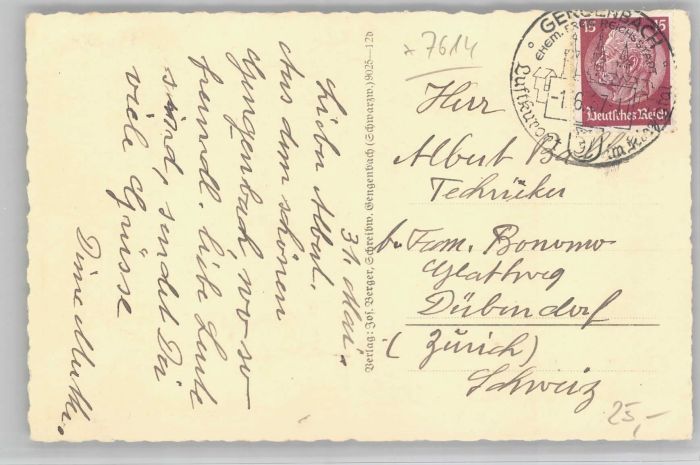 31. Mai.
Lieber Albert.
Aus dem schönen
Gengenbach wo so
freundl. liebe Leute
sind, sendet Dir
viele Grüsse
Deine Mutter.
Verlag: Jos. Berger, Schreibw. Gengenbach (Schwarzw.) 9025-12b
* 7614
GENGENBACH
EHEM. FREIE REICHSSTADT
Luftkurort im Kinzigtal
-1.6.37
15 15
Deutsches Reich
Herr
Albert
Techniker
b. Fam. Bonomo
Glattweg
Dübendorf
(Zürich)
Schweiz
25,-